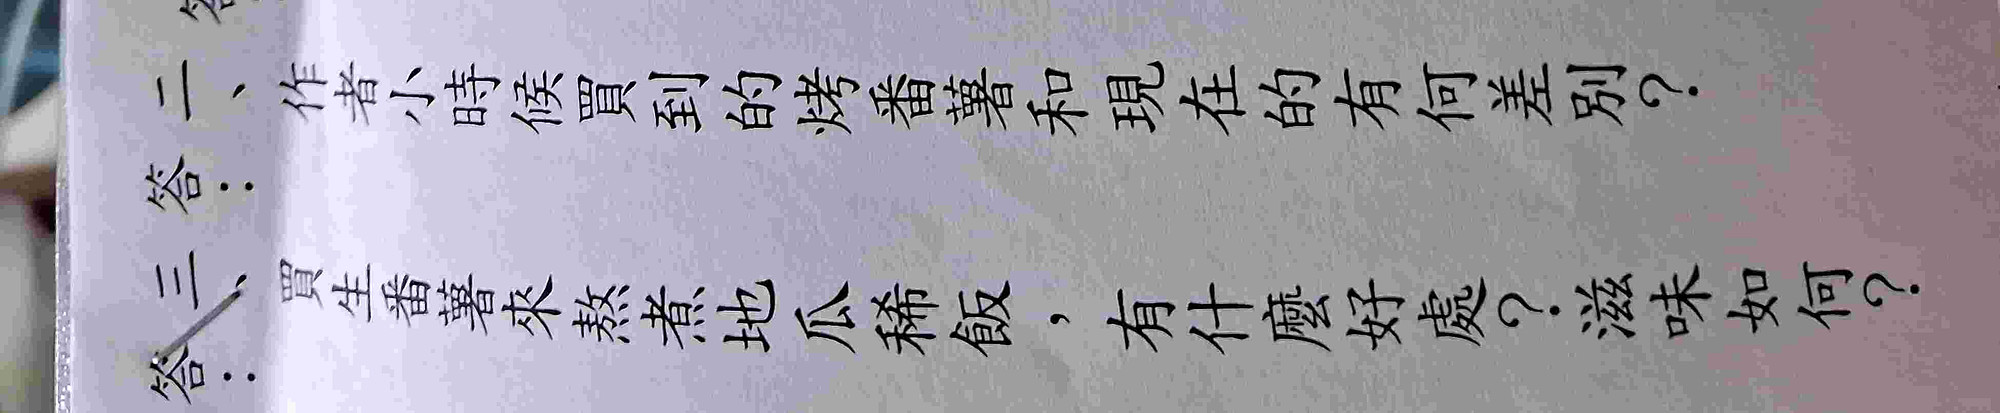 二、作者小時候買到的烤番薯和現在的有何差別？
答：
三、買生番薯來熬煮地瓜稀飯，有什麼好處？滋味如何？
答：